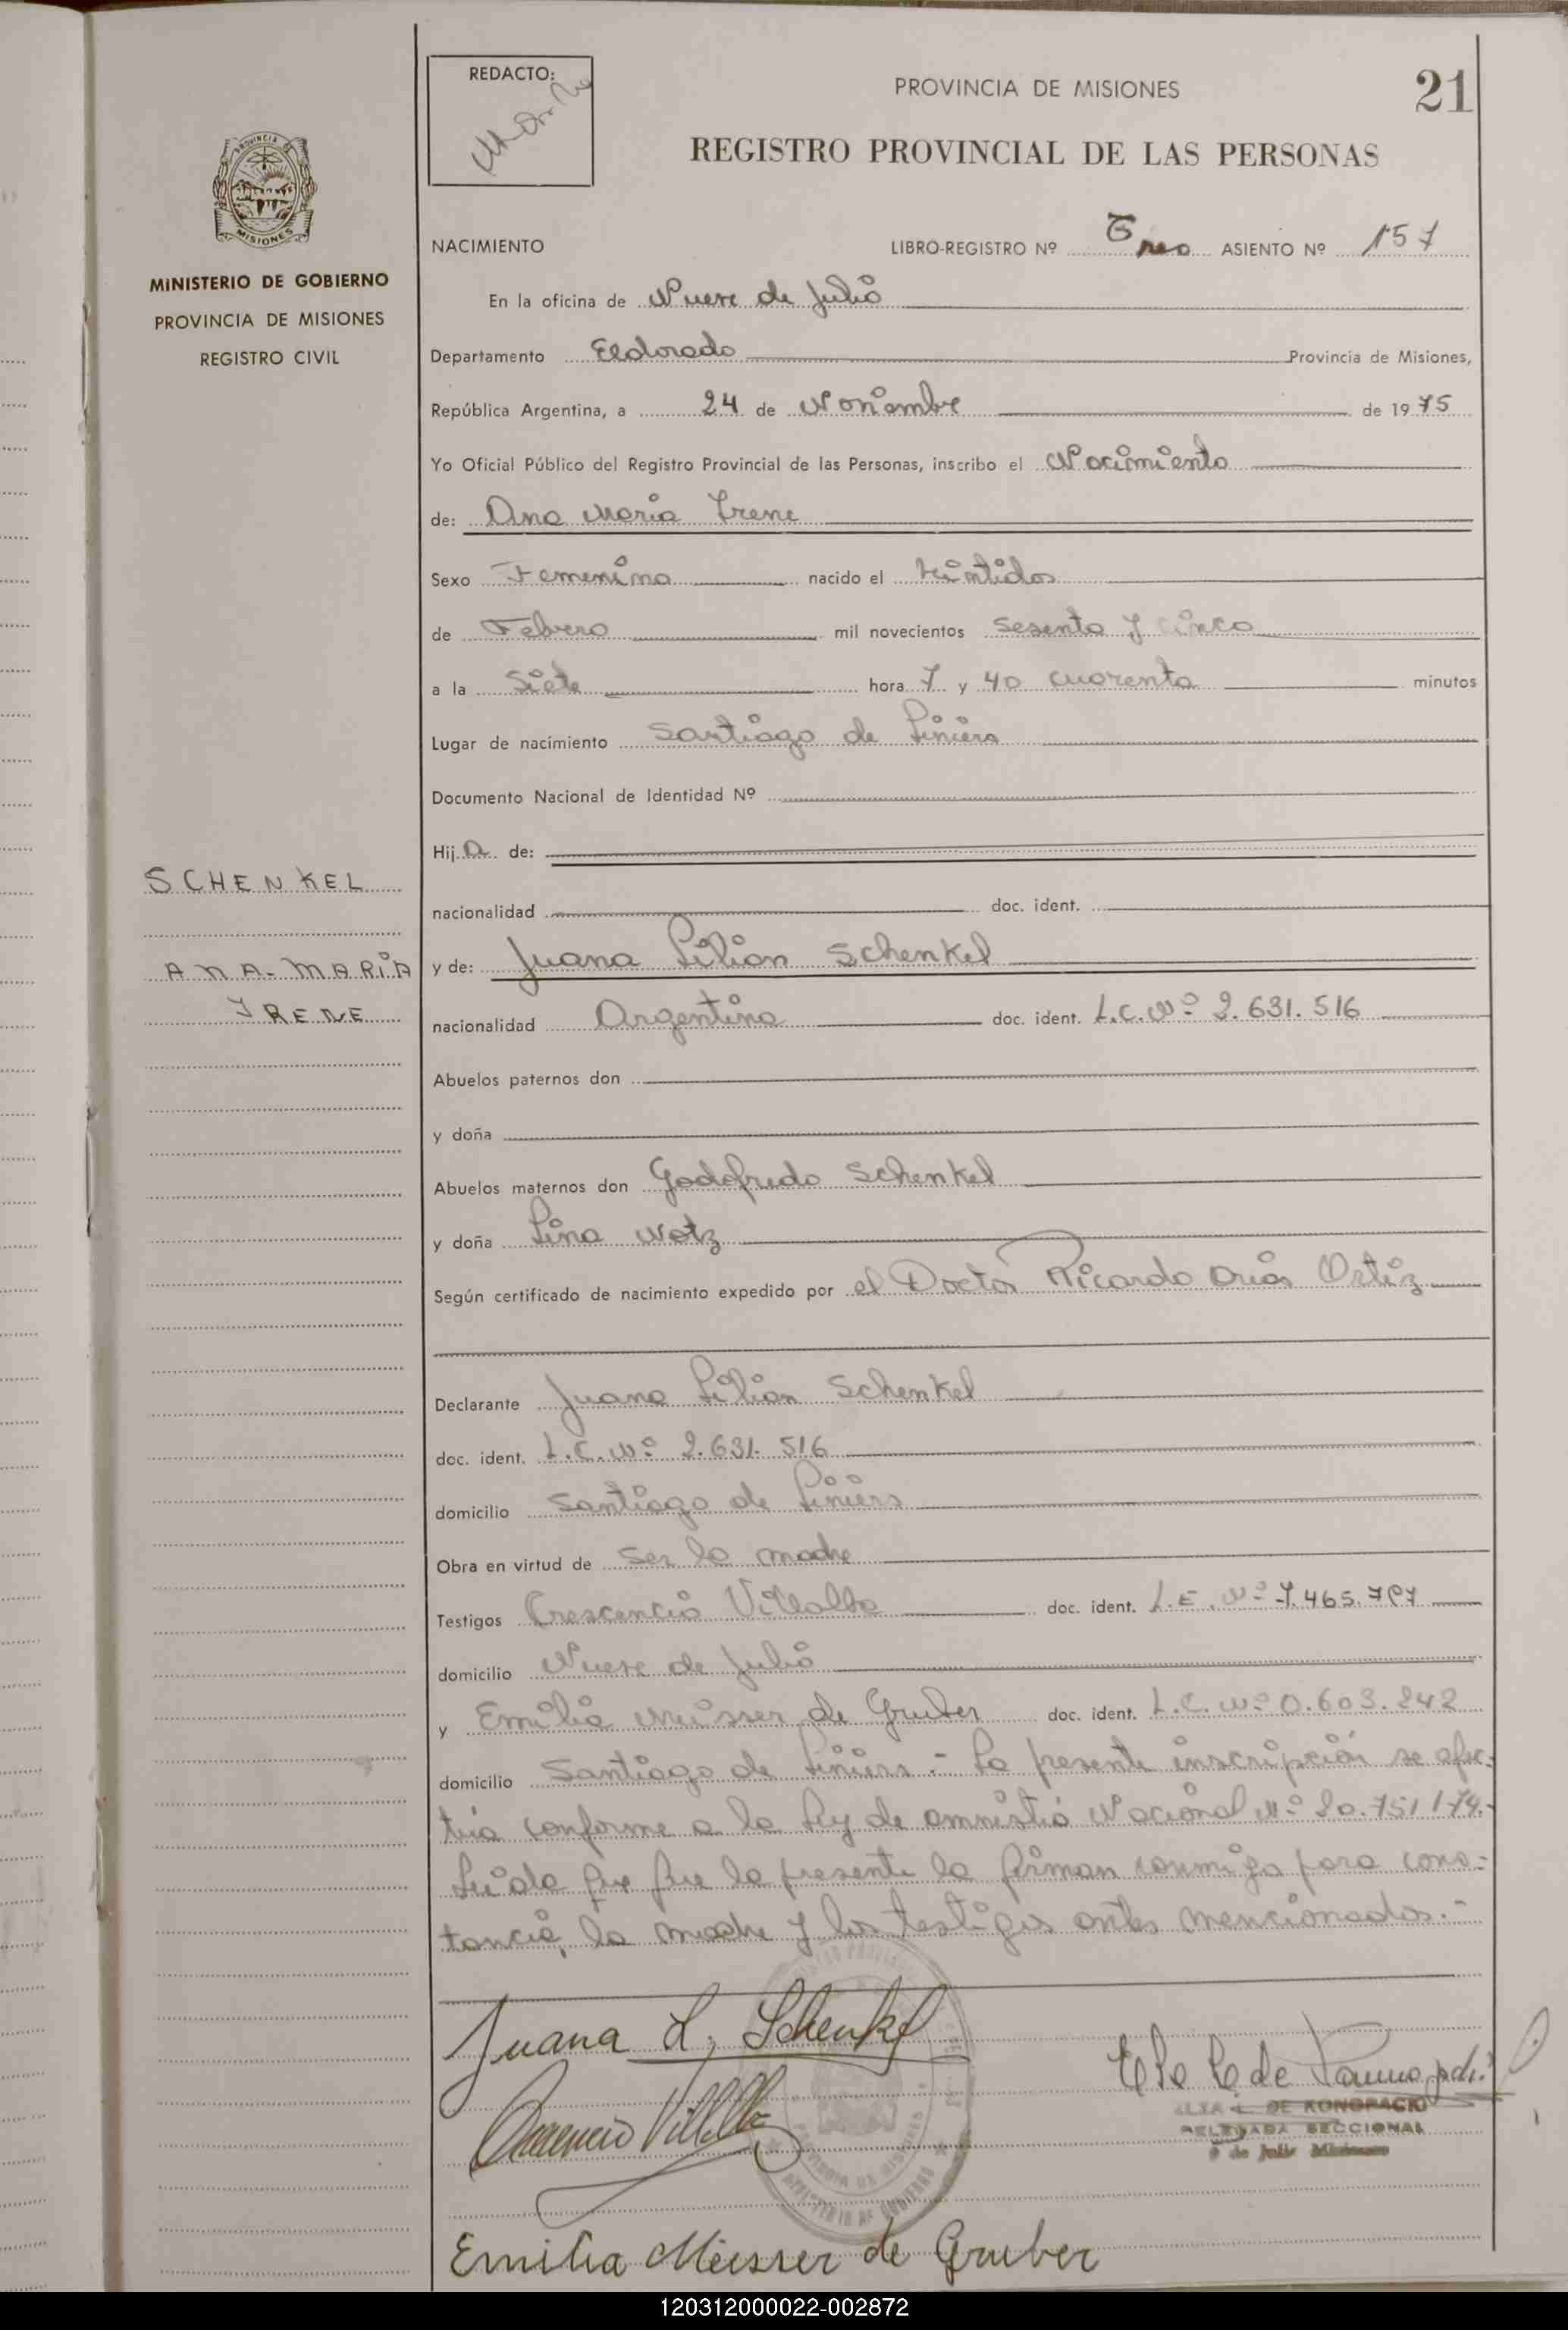 REDACTO:
PROVINCIA DE MISIONES
21
REGISTRO PROVINCIAL DE LAS PERSONAS
PROVINCIA DE
MISIONES
MINISTERIO DE GOBIERNO
PROVINCIA DE MISIONES
REGISTRO CIVIL
NACIMIENTO LIBRO-REGISTRO Nº Tres ASIENTO Nº 157
En la oficina de Nueve de Julio
Departamento Eldorado Provincia de Misiones,
República Argentina, a 24 de Noviembre de 1975
Yo Oficial Público del Registro Provincial de las Personas, inscribo el Nacimiento
de: Ana María Irene
Sexo Femenina nacido el veintidos
de Febrero mil novecientos sesenta y cinco
a la Siete hora 7 y 40 cuarenta minutos
Lugar de nacimiento Santiago de Liniers
Documento Nacional de Identidad Nº
Hij a de:
SCHENKEL
nacionalidad doc. ident.
ANA-MARIA
IRENE
y de: Juana Lilian Schenkel
nacionalidad Argentina doc. ident. L.C. Nº 2.631.516
Abuelos paternos don
y doña
Abuelos maternos don Godofredo Schenkel
y doña Lina
Según certificado de nacimiento expedido por el Doctor Ricardo Ortiz
Declarante Juana Lilian Schenkel
doc. ident. L.C. Nº 2.631.516
domicilio Santiago de Liniers
Obra en virtud de ser la madre
Testigos Crescencio Villalba doc. ident. L.E. Nº 7.465.797
domicilio Nueve de Julio
y Emilia Meisser de Gruber doc. ident. L.C. Nº 0.603.242
domicilio Santiago de Liniers.- La presente inscripción se efec-
túa conforme a la Ley de amnistía Nacional Nº 20.751/74.-
Leida que fue la presente la firman conmigo para cons-
tancia, la madre y los testigos antes mencionados.-
Juana L. Schenkel
DE KONOPACKI
DELEGADA SECCIONAL
9 de Julio Misiones
PROVINCIA DE MISIONES
MINISTERIO DE GOBIERNO
Emilia Meisser de Gruber
120312000022-002872